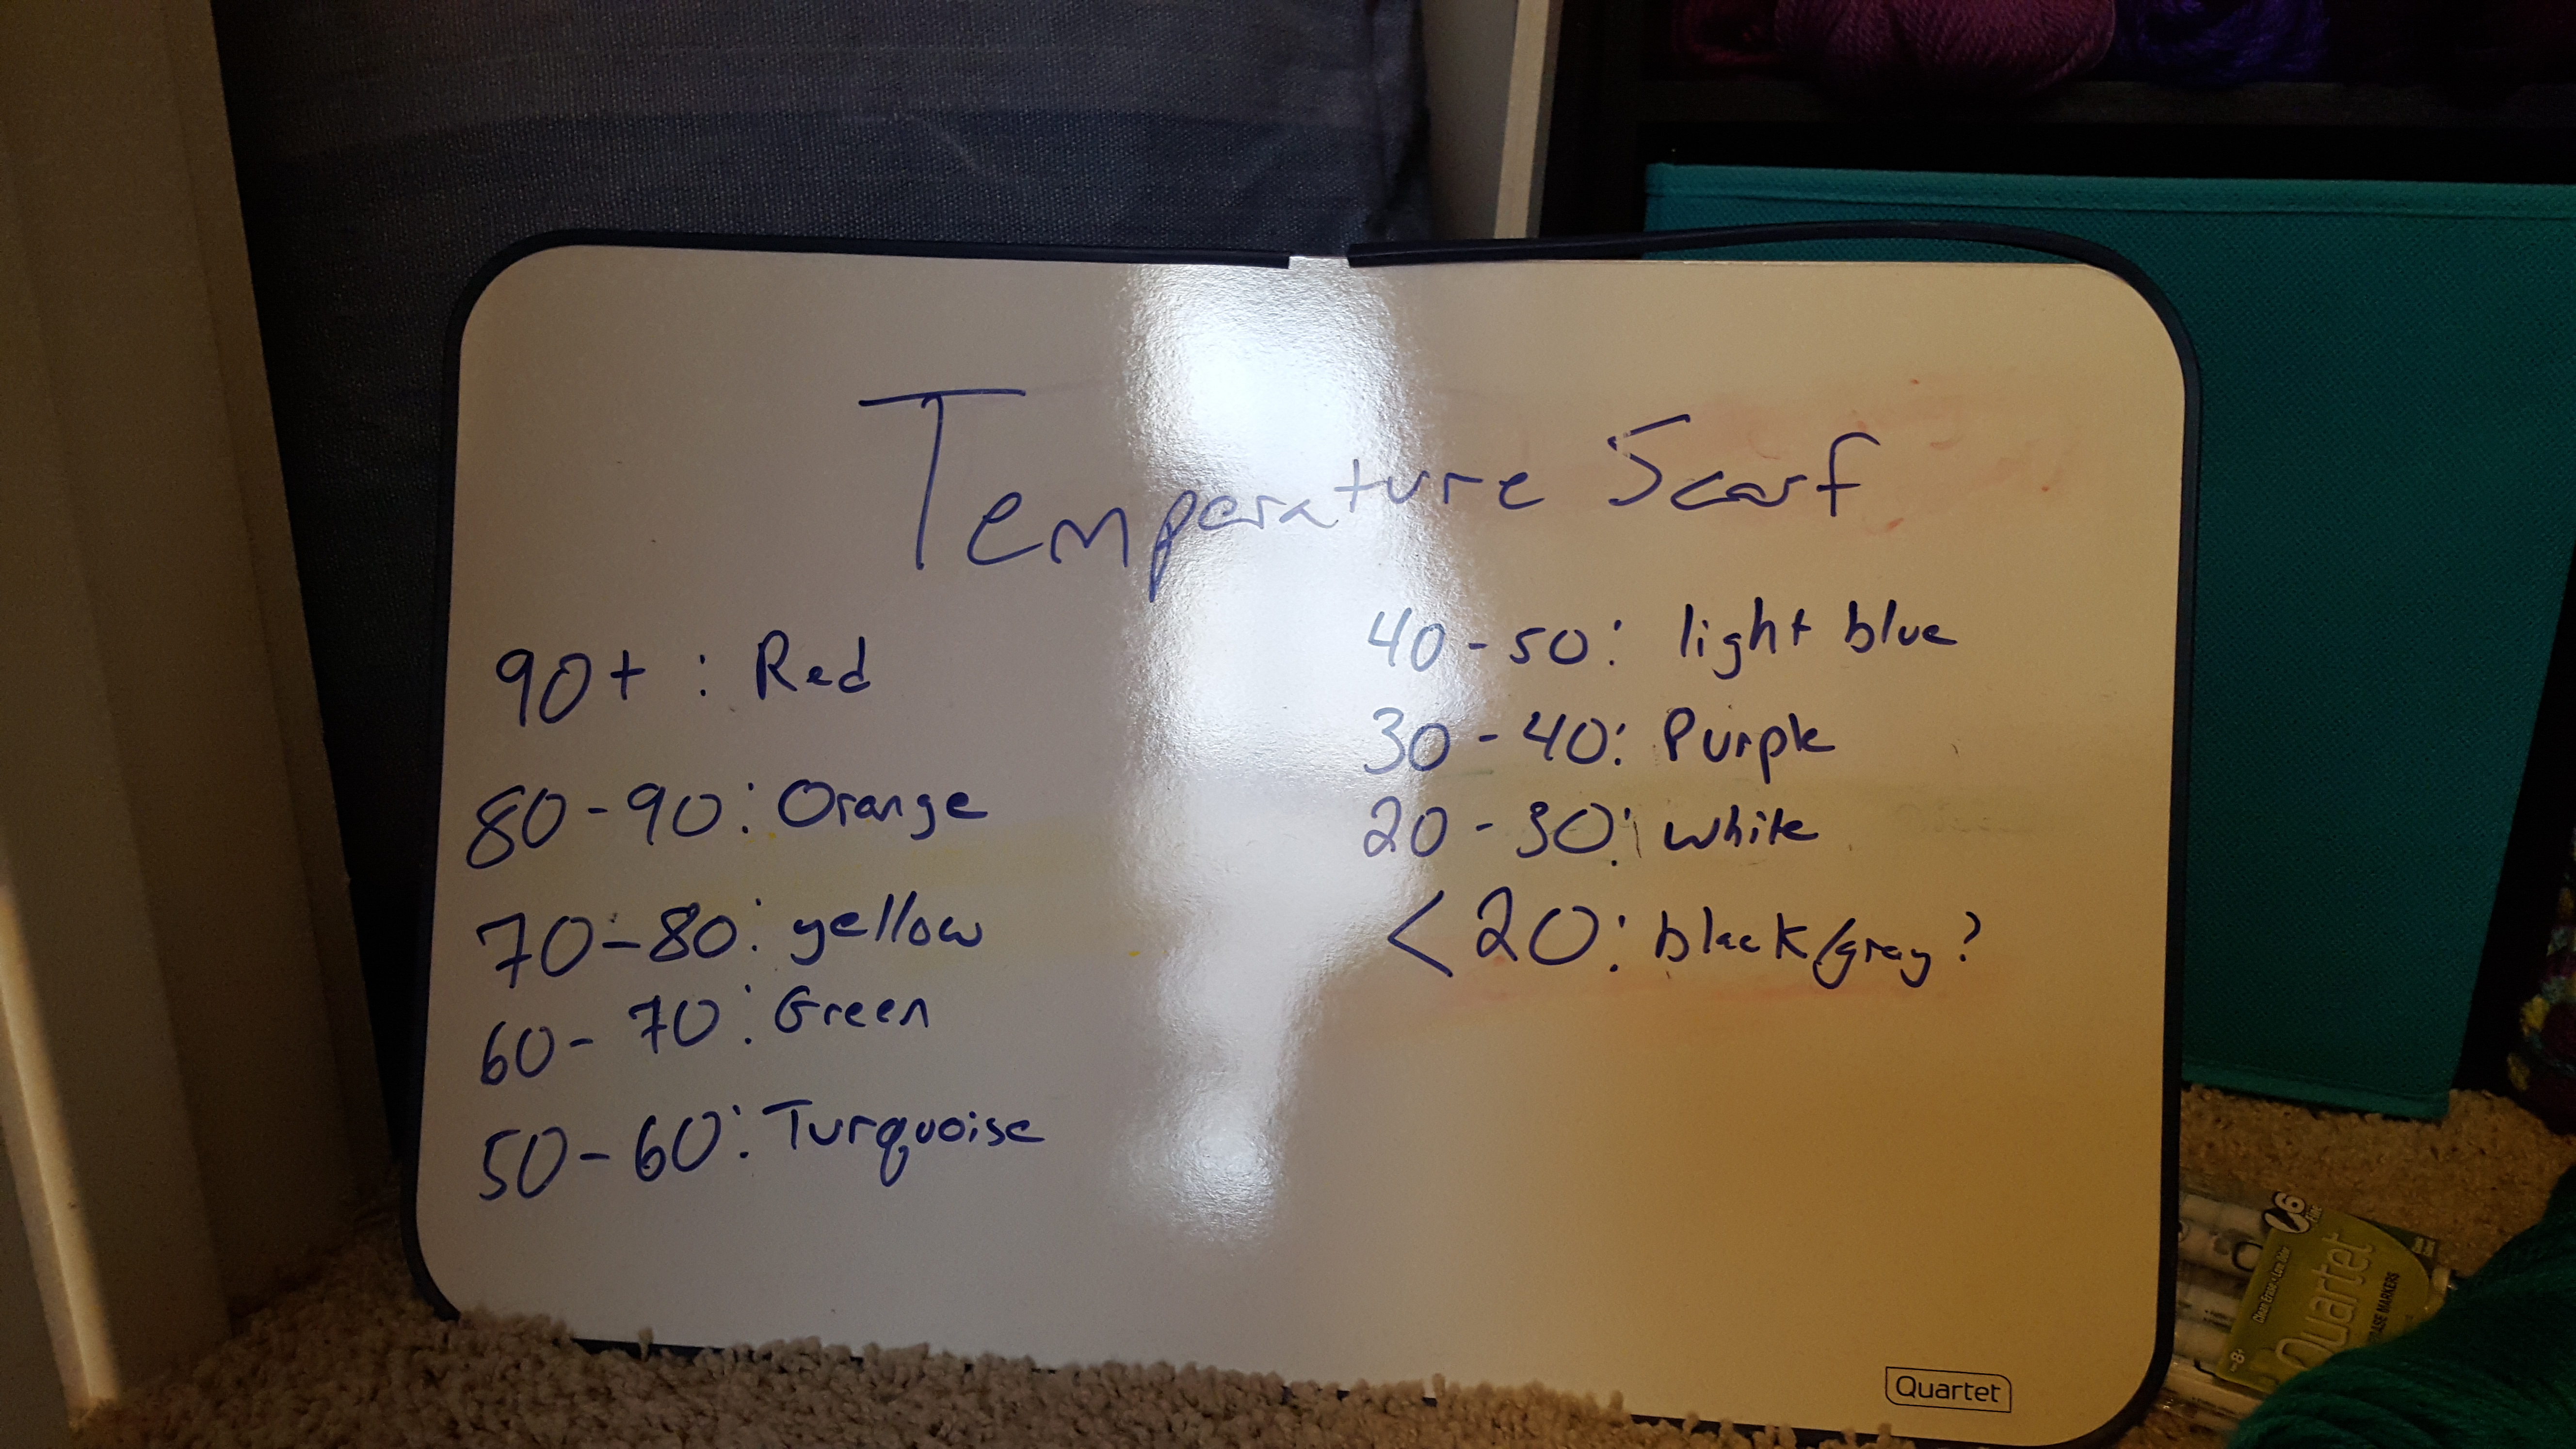 Temperature Scarf
90+ : Red
80-90: Orange
70-80: yellow
60-70: Green
50-60: Turquoise
40-50: light blue
30-40: Purple
20-30: white
<20: black/gray?
Quartet
Quartet